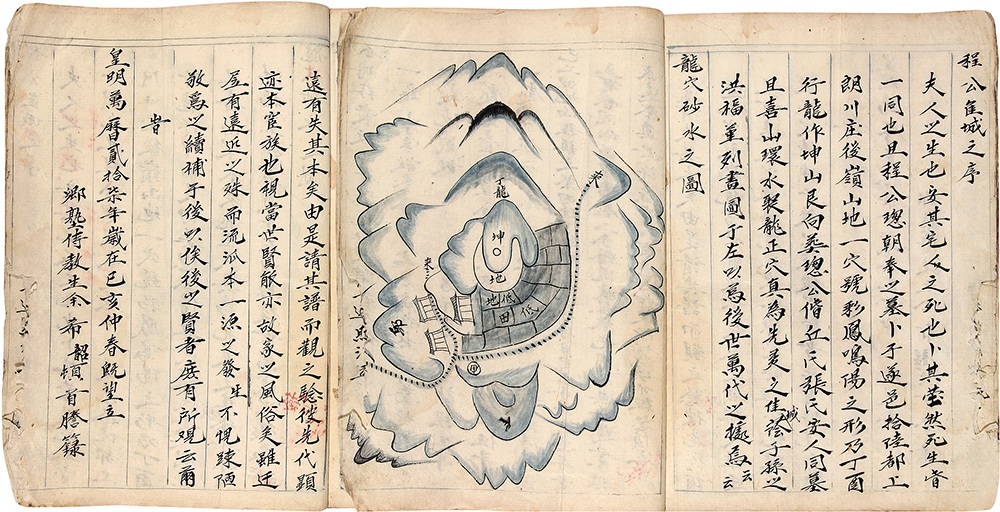 程公隹城之序
夫人之生也安其宅人之死也卜其塋然死生皆
一同也且程公璁朝奉之墓卜于遂邑拾陸都上
朗川庄後嶺山地一穴號彩鳳鳴陽之形乃丁酉
行龍作坤山艮向葬璁公偕丘氏張氏安人同墓
且喜山環水聚龍正穴真為先灵之佳城詮子孫之
洪福並列畫圖于左以為後世萬代之據為云云
龍穴砂水之圖
丁龍
坤
地
地低
田低
遠有失其本矣由是請其譜而觀之驗彼先代顕
迹本宦族也視當世賢骸亦故家之風俗矣雖迁
居有遠近之殊而流派本一源之發生不愧踈陋
敬爲之續補于後以俟後之賢者庶有所观云爾
旹
皇明萬曆貳拾柒年歲在己亥仲春既望立
鄉塾侍教生余希韶頓首謄錄